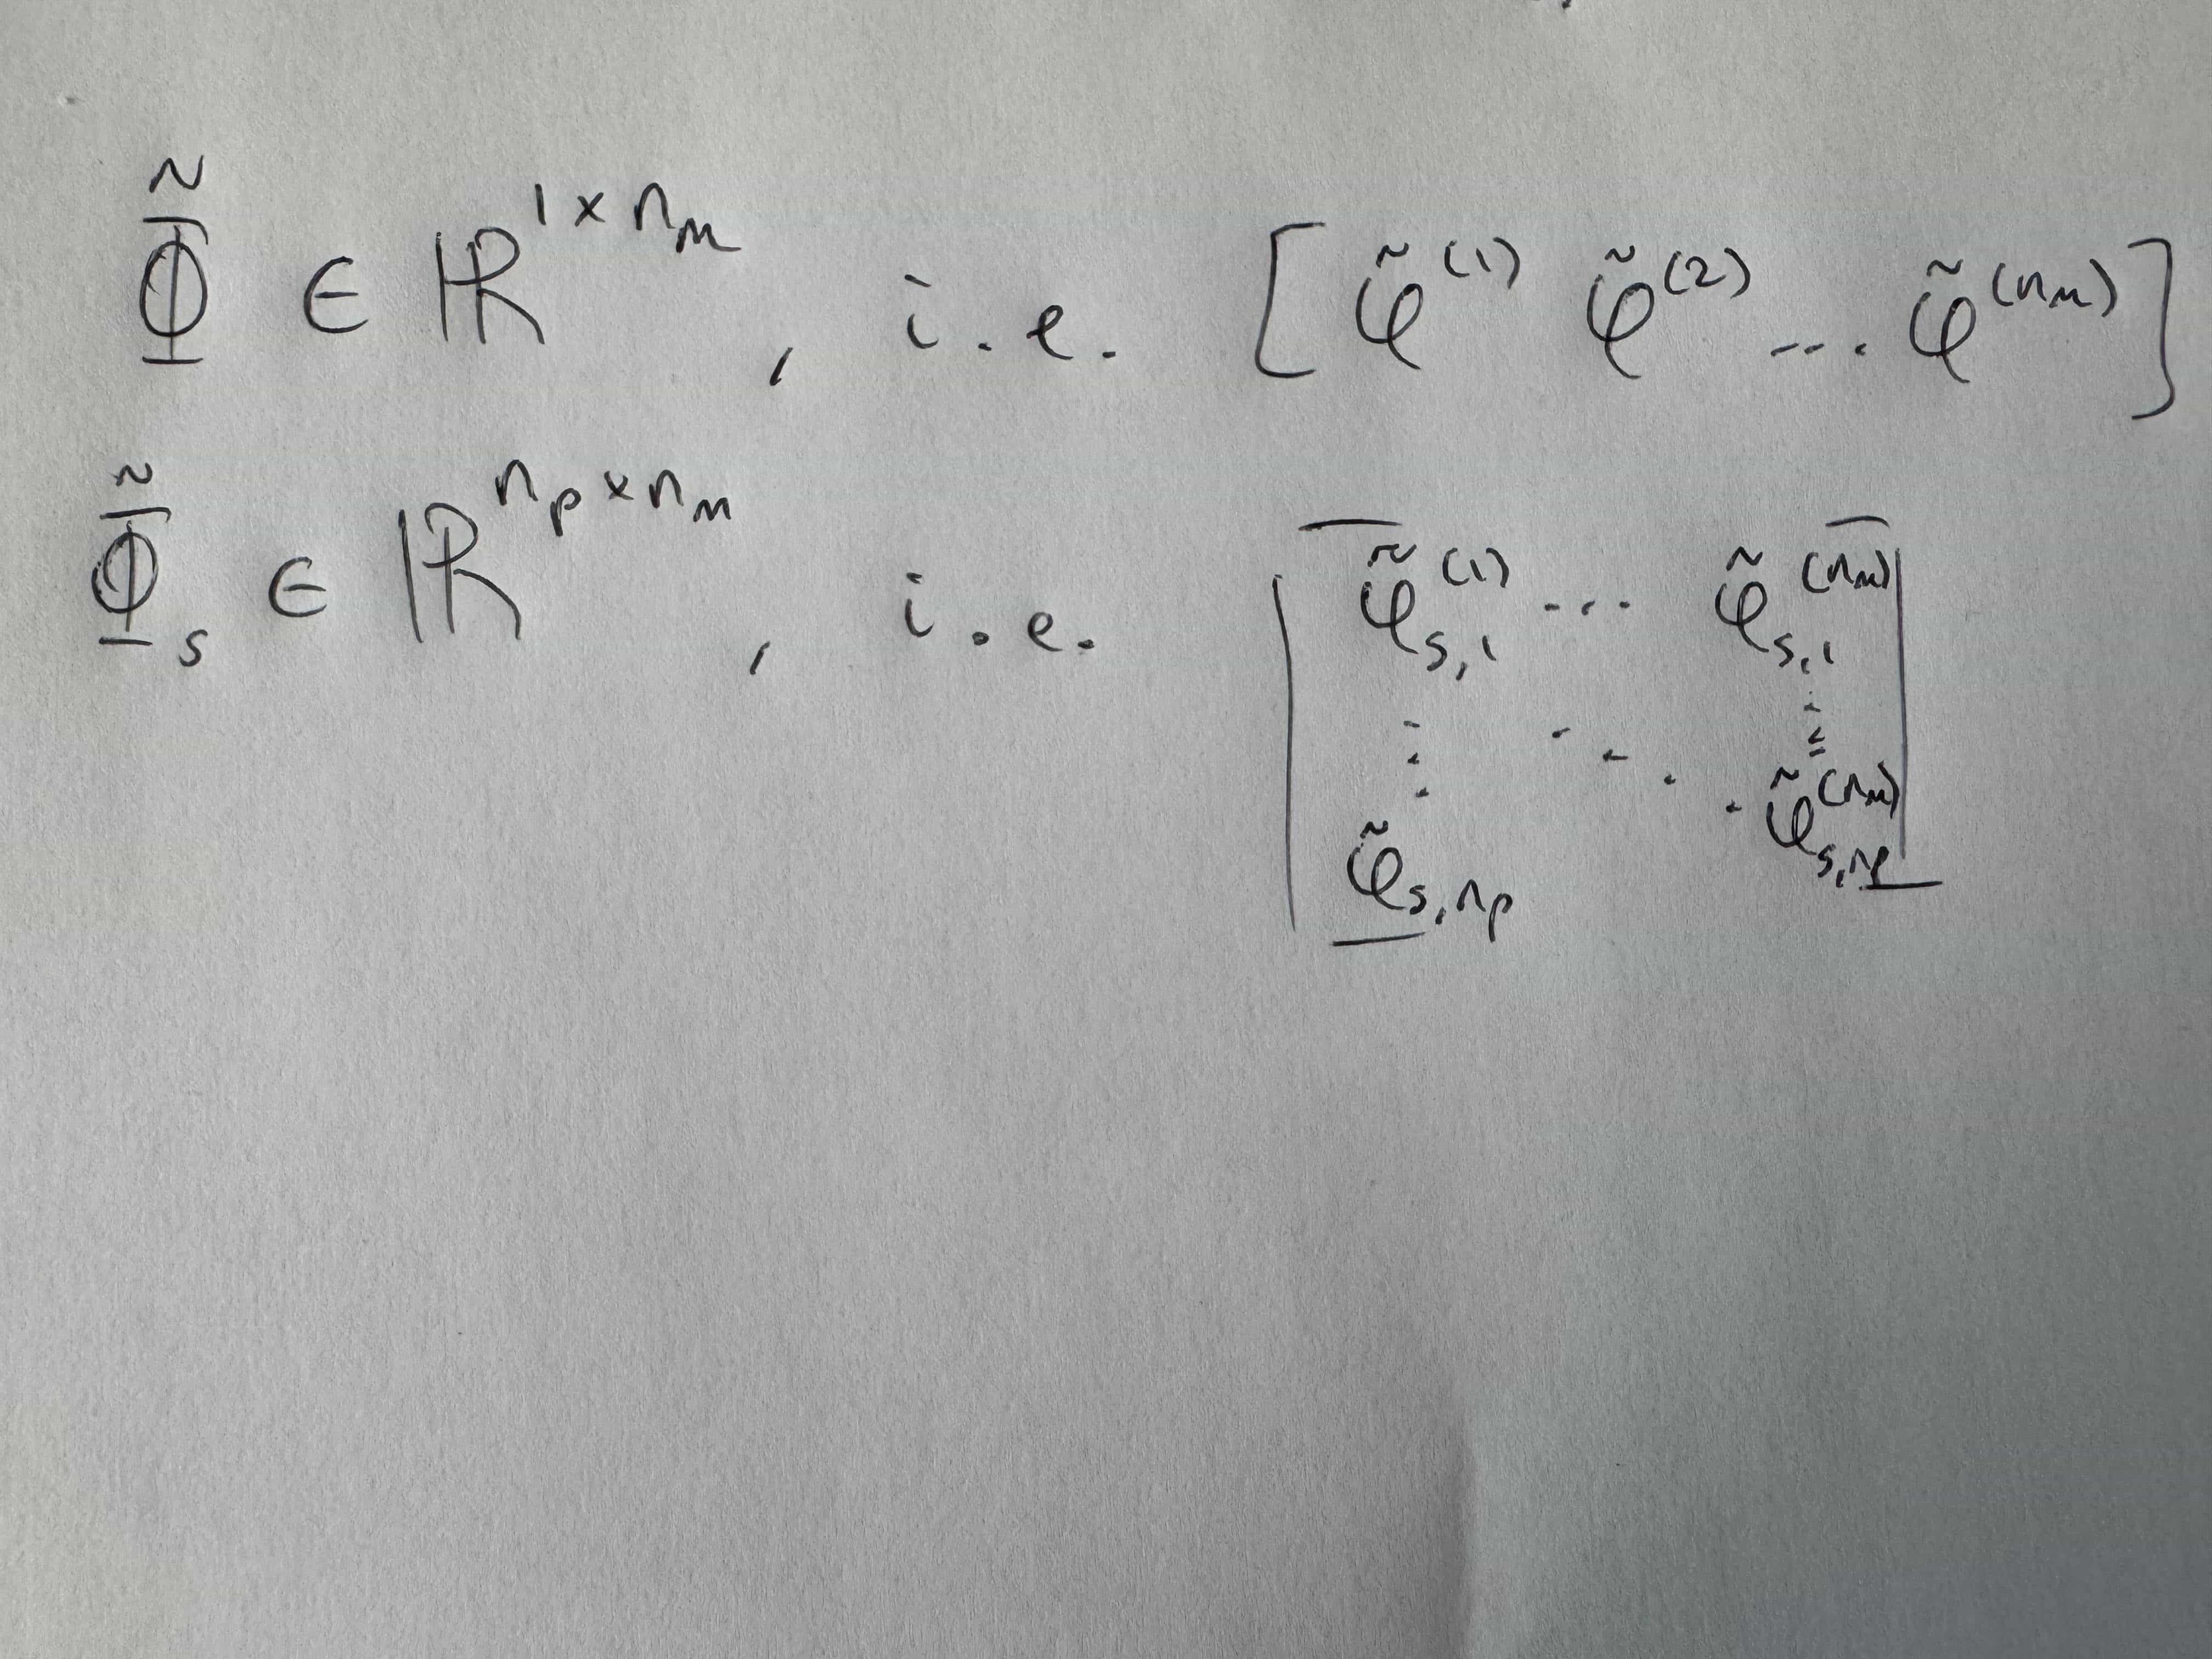 Φ̃ ∈ ℝ^{1×n_m}, i.e. [φ̃^{(1)} φ̃^{(2)} ... φ̃^{(n_m)}]
Φ̃_s ∈ ℝ^{n_p×n_m}, i.e. [φ̃_{s,1}^{(1)} ... φ̃_{s,1}^{(n_m)}
⋮ ⋱ ⋮
φ̃_{s,n_p} φ̃_{s,n_p}^{(n_m)}]